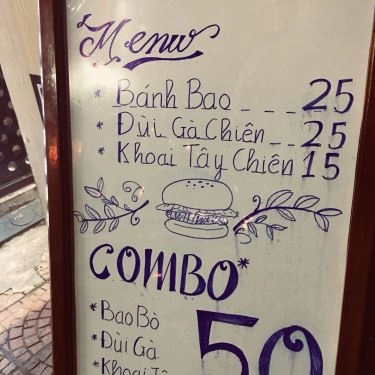 Menu
* Bánh Bao _ _ _ 25
* Đùi Gà Chiên _ _ 25
* Khoai Tây Chiên 15
COMBO*
* Bao Bò
* Đùi Gà
* Khoai Tâ
50